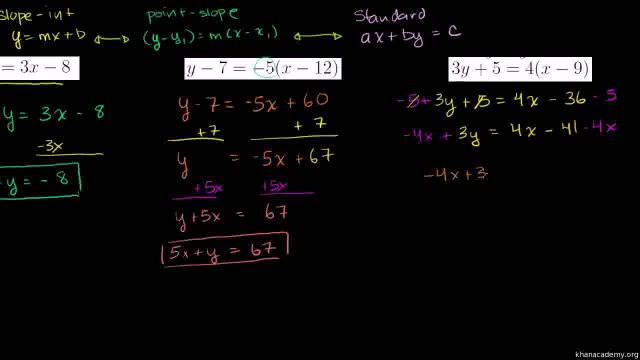 slope-int point-slope Standard
y = mx + b (y-y₁) = m(x-x₁) ax + by = c
= 3x − 8 y − 7 = −5(x − 12) 3y + 5 = 4(x − 9)
y = 3x - 8 y - 7 = -5x + 60 -5 + 3y + 5 = 4x - 36 - 5
-3x +7 + 7 -4x + 3y = 4x - 41 - 4x
y = - 8 y = -5x + 67 -4x + 3
+5x +5x
y + 5x = 67
5x + y = 67
khanacademy.org